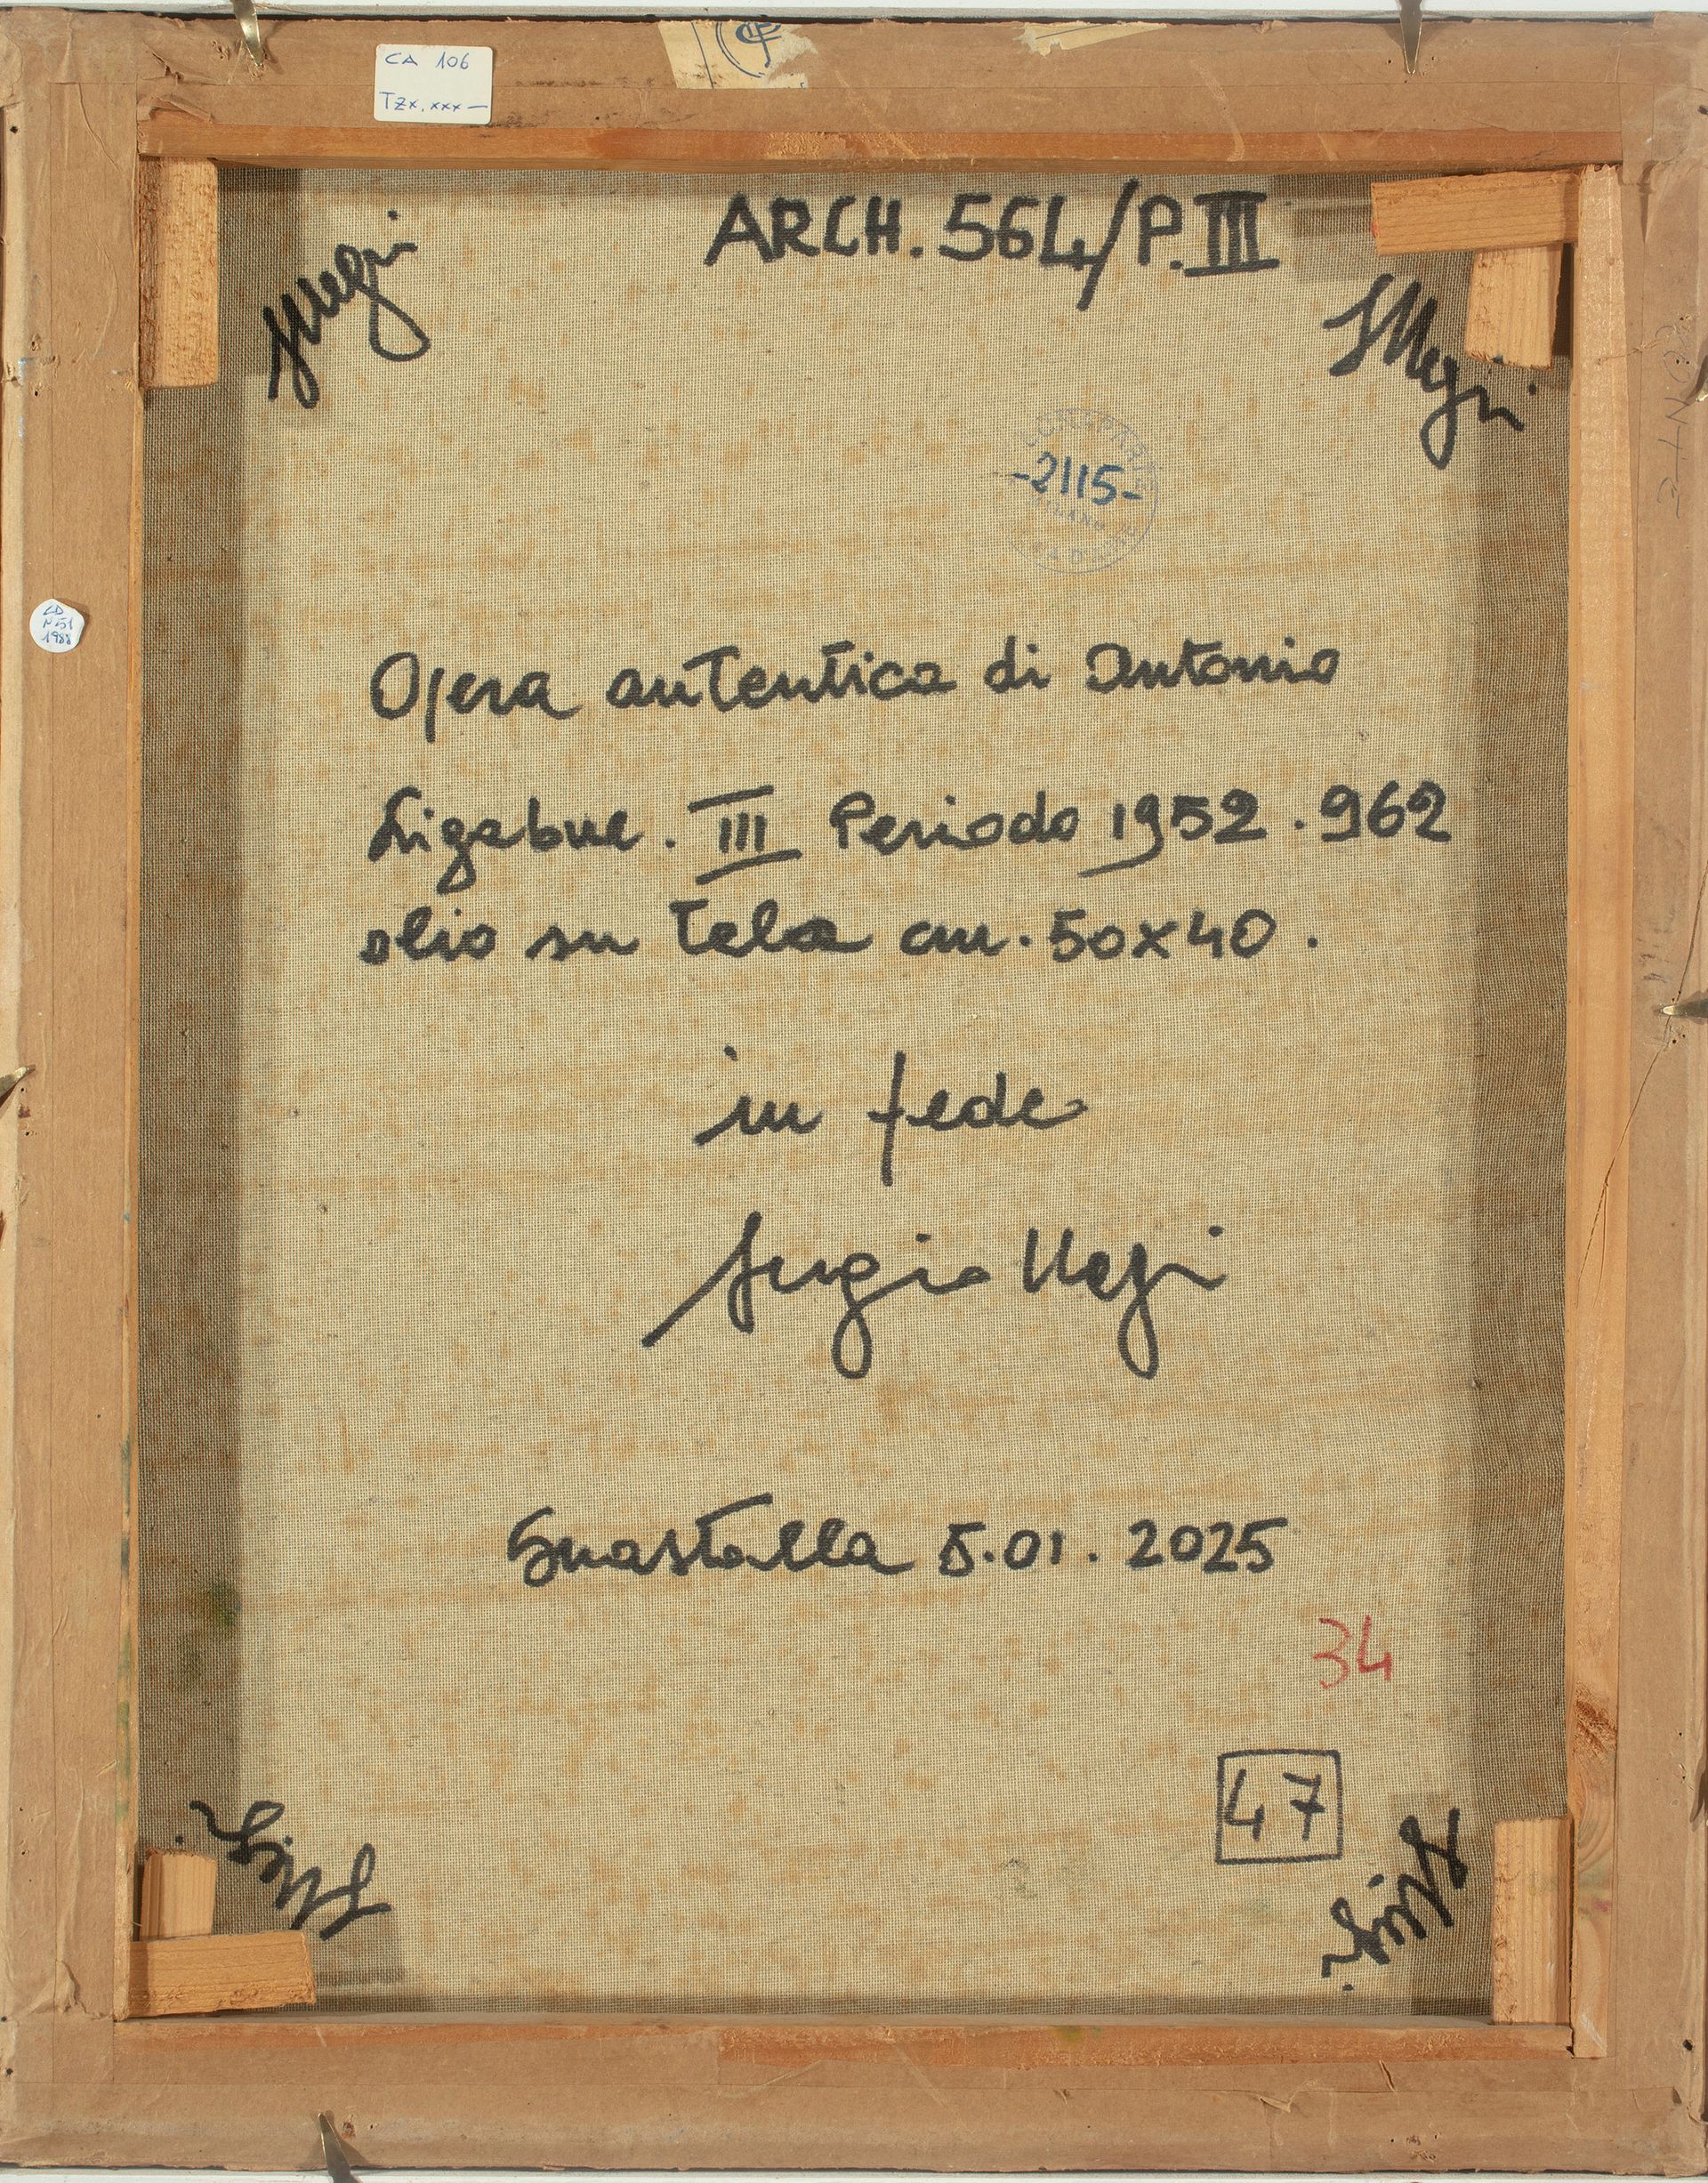 CA 106
TZx.xxx—
ARCH. 564/P.III
SNegri
SNegri
-2115-
MILANO
LD
N 51
1988
Opera autentica di Antonio
Ligabue. III Periodo 1952.962
olio su tela cm. 50x40.
in fede
Sergio Negri
Guastalla 5.01.2025
34
47
SNegri
SNegri